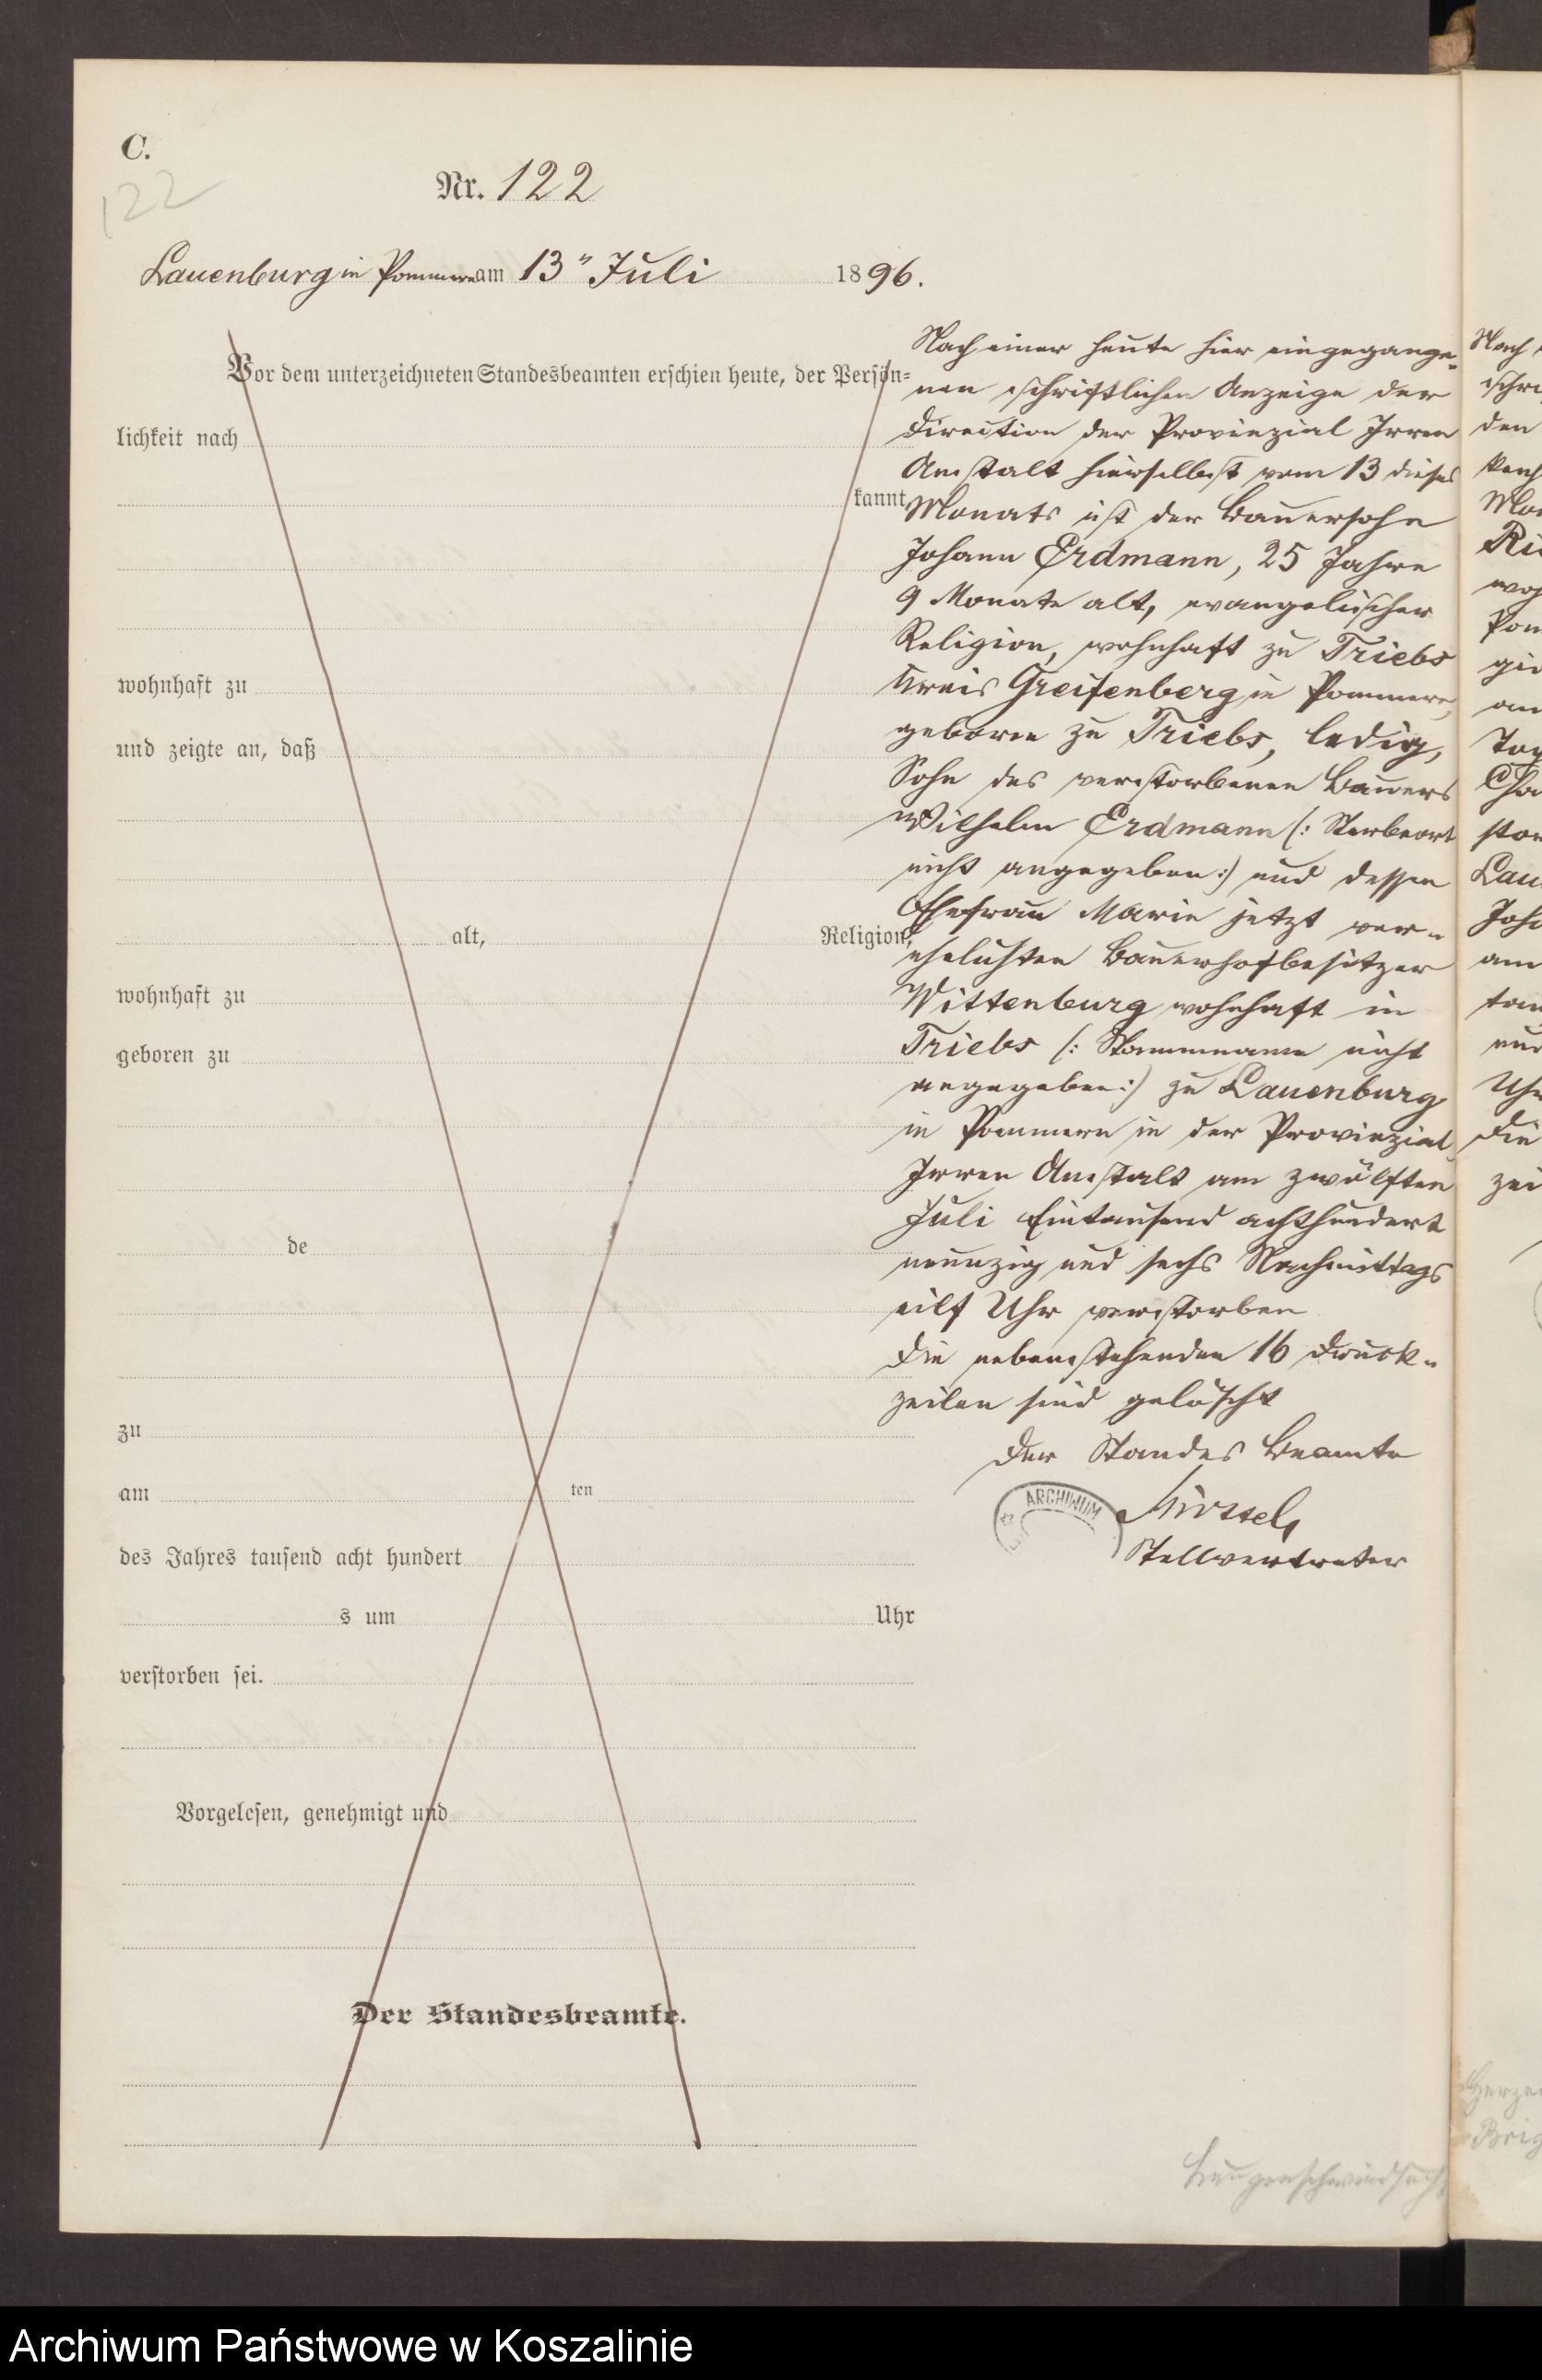 C.
122
Nr. 122
Lauenburg in Pommern am 13" Juli 1896.
Vor dem unterzeichneten Standesbeamten erschien heute, der Persön=
lichkeit nach
kannt,
wohnhaft zu
und zeigte an, daß
alt, Religion,
wohnhaft zu
geboren zu
de
zu
am ten
des Jahres tausend acht hundert
s um Uhr
verstorben sei.
Vorgelesen, genehmigt und
Der Standesbeamte.
Nach einer heute hier eingegange-
nen schriftlichen Anzeige der
Direction der Provinzial Irren
Anstalt hierselbst vom 13 dieses
Monats ist der Bauersohn
Johann Erdmann, 25 Jahre
9 Monate alt, evangelischer
Religion, wohnhaft zu Triebs
Kreis Greifenberg in Pommern,
geboren zu Triebs, ledig,
Sohn des verstorbenen Bauers
Wilhelm Erdmann (: Sterbeort
nicht angegeben :) und dessen
Ehefrau Marie jetzt ver-
ehelichten Bauerhofbesitzer
Wittenburg wohnhaft in
Triebs (: Stammname nicht
angegeben :) zu Lauenburg
in Pommern in der Provinzial
Irren Anstalt am zwölften
Juli Eintausend achthundert
neunzig und sechs Nachmittags
eilf Uhr verstorben
Die nebenstehenden 16 Druck-
zeilen sind gelöscht
Der Standes Beamte
Stellvertreter
ARCHIWUM
Lungenschwindsucht
Nach
schri
den
Mon
Ri
Pom
am
Tag
Lau
Joh
am
und
Uhr
Die
zei
Archiwum Państwowe w Koszalinie